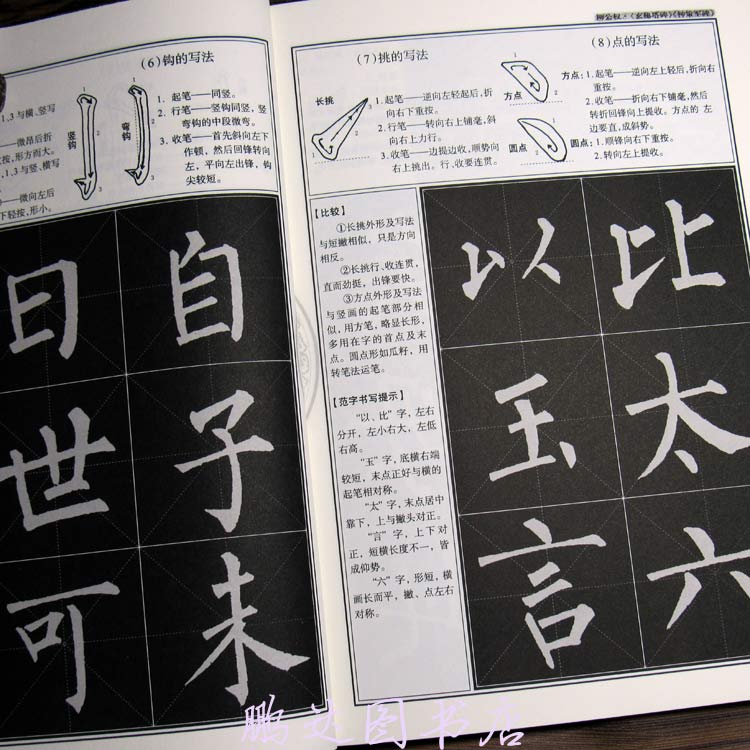 柳公权·《玄秘塔碑》《神策军碑》
1,3与横、竖写
——微昂后折
按,形方而大。
1,3与竖、横写
——微向左后
下轻按,形小。
(6)钩的写法
竖钩
弯钩
1. 起笔——同竖。
2. 行笔——竖钩同竖,竖
弯钩的中段微弯。
3. 收笔——首先斜向左下
作顿,然后回锋转向
左,平向左出锋,钩
尖较短。
日
自
世
子
可
未
(7)挑的写法
长挑
1. 起笔——逆向左轻起后,折
向右下重按。
2. 行笔——转向右上铺毫,斜
向右上力行。
3. 收笔——边提边收,顺势向
右上挑出。行、收要连贯。
(8)点的写法
方点
圆点
方点:1. 起笔——逆向左上轻后,折向右
重按。
2. 收笔——折向右下铺毫,然后
转折回锋向上提收。方点的 左
边要直,成斜势。
圆点:1. 顺势向右下重按。
2. 转向左上提收。
【比较】
①长挑外形及写法
与短撇相似,只是方向
相反。
②长挑行、收连贯,
直而劲挺,出锋要快。
③方点外形及写法
与竖画的起笔部分相
似,用方笔,略显长形,
多用在字的首点及末
点。圆点形如瓜籽,用
转笔法运笔。
【范字书写提示】
“以、比”字,左右
分开,左小右大,左低
右高。
“玉”字,底横右端
较短,末点正好与横的
起笔相对称。
“太”字,末点居中
靠下,上与撇头对正。
“言”字,上下对
正,短横长度不一,皆
成仰势。
“六”字,形短,横
画长而平,撇、点左右
对称。
以
比
玉
太
言
六
鹏达图书店